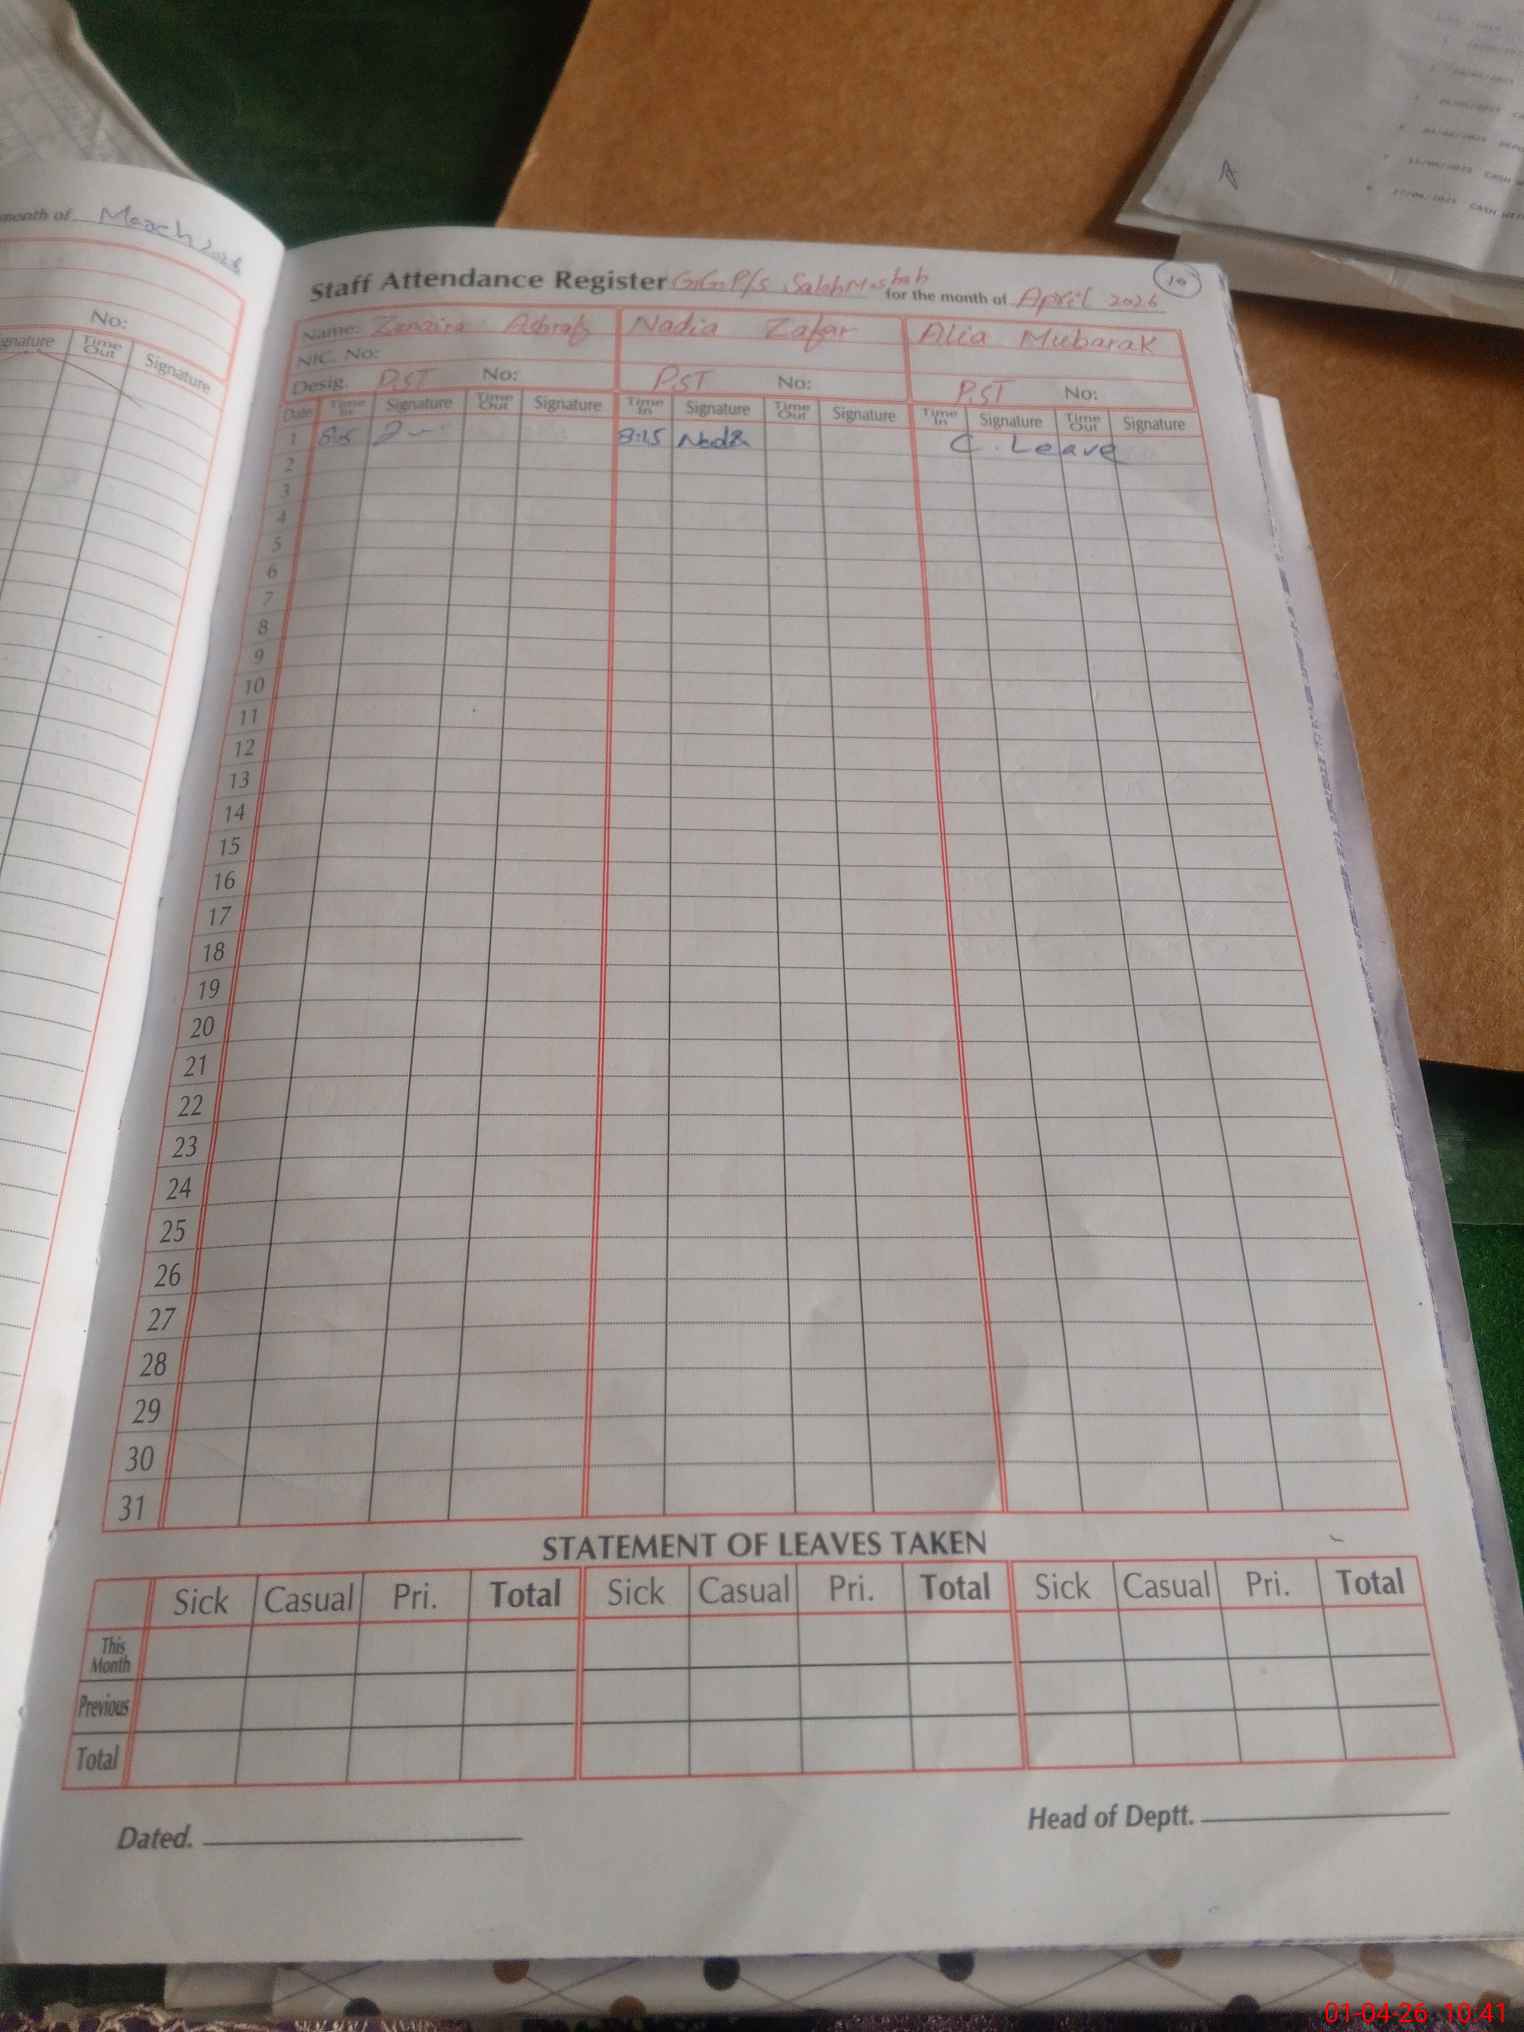 month of March 2026
No:
Signature Time Out Signature
Staff Attendance Register G.G.P/S for the month of April 2026
10
Name: Ashraf Nadia Zafar Alia Mubarak
NIC. No:
Desig. P.ST No: P.ST No: P.ST No:
Date Time In Signature Time Out Signature Time In Signature Time Out Signature Time In Signature Time Out Signature
1 8:15 C. Leave
2
3
4
5
6
7
8
9
10
11
12
13
14
15
16
17
18
19
20
21
22
23
24
25
26
27
28
29
30
31
STATEMENT OF LEAVES TAKEN
Sick Casual Pri. Total Sick Casual Pri. Total Sick Casual Pri. Total
This Month
Previous
Total
Dated. Head of Deptt.
01-04-26 10:41